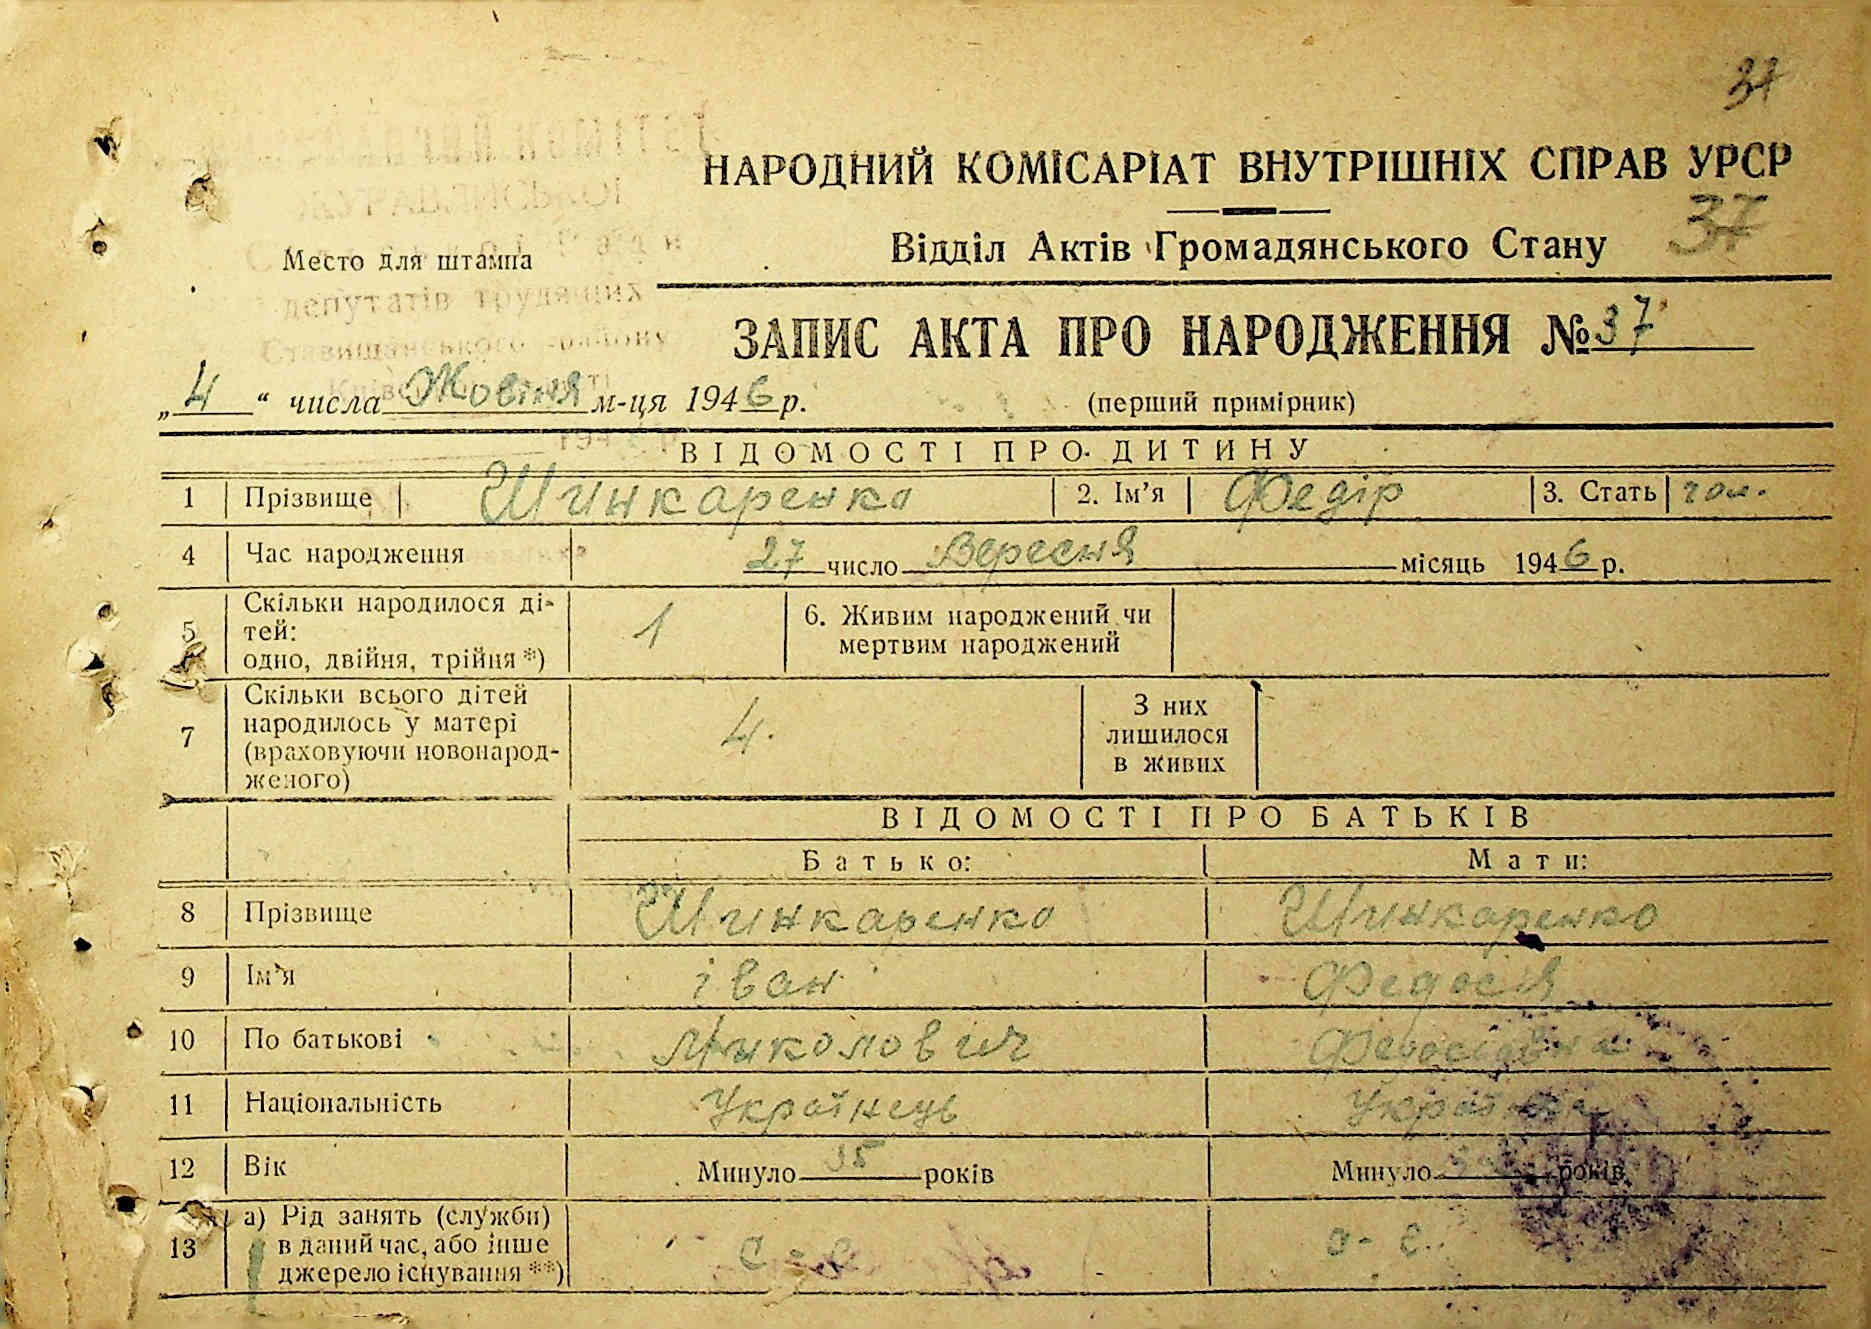 37
НАРОДНИЙ КОМІСАРІАТ ВНУТРІШНІХ СПРАВ УРСР
37
Место для штампа
Відділ Актів Громадянського Стану
депутатів трудящих
Ставищанського району
ЗАПИС АКТА ПРО НАРОДЖЕННЯ №37
„4“ числа Жовтня м-ця 1946 р.
(перший примірник)
ВІДОМОСТІ ПРО ДИТИНУ
1 Прізвище Шинкаренко 2. Ім'я Федір 3. Стать чол.
4 Час народження 27 число Вересня місяць 1946 р.
5 Скільки народилося ді-
тей:
одно, двійня, трійня *) 1 6. Живим народжений чи
мертвим народжений
7 Скільки всього дітей
народилось у матері
(враховуючи новонарод-
женого) 4. З них
лишилося
в живих
ВІДОМОСТІ ПРО БАТЬКІВ
Батько: Мати:
8 Прізвище Шинкаренко Шинкаренко
9 Ім'я іван Федосія
10 По батькові Миколович
11 Національність Українець Українка
12 Вік Минуло 35 років Минуло років
13 а) Рід занять (служби)
в даний час, або інше
джерело існування **) с-г